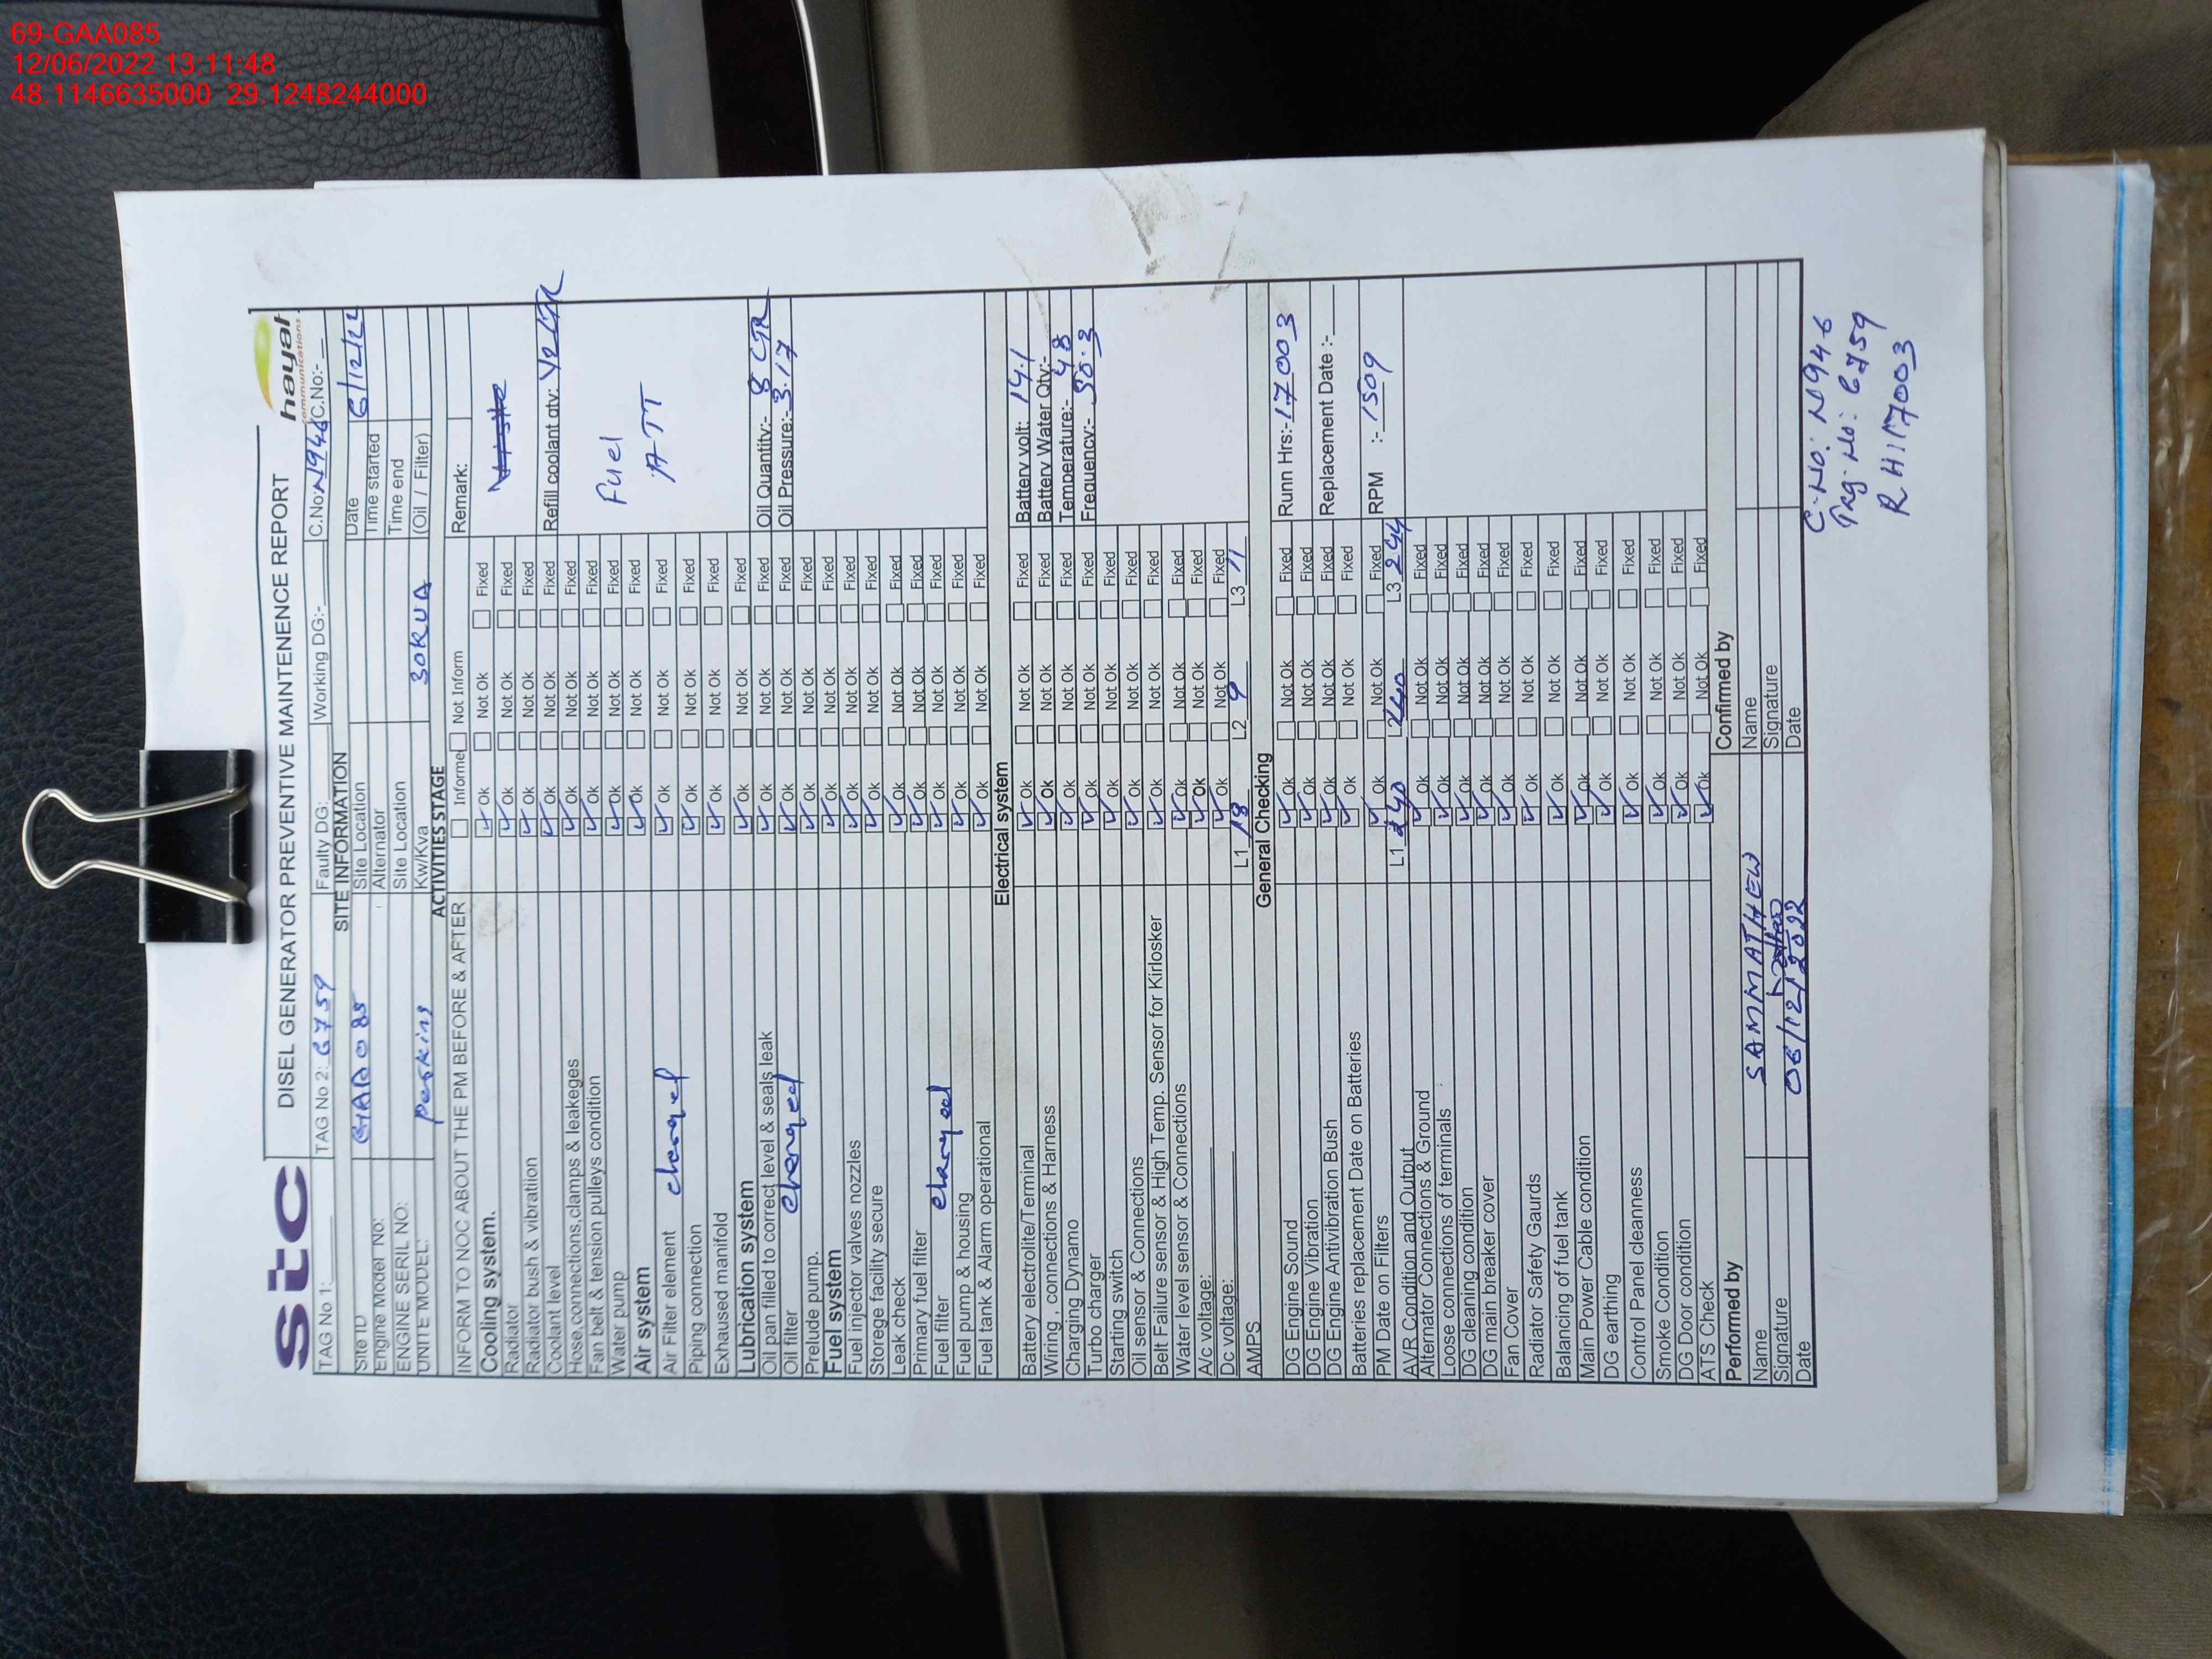 69-GAA085
12/06/2022 13:11:48
48.1146635000 29.1248244000
stc
DISEL GENERATOR PREVENTIVE MAINTENENCE REPORT
hayat
communications
TAG No 1: TAG No 2: 6759 Faulty DG: Working DG:- C.No: N946 C.No:-
SITE INFORMATION
Site ID GAA085 Site Location Date 6/12/22
Engine Model No: Alternator Time started
ENGINE SERIL NO: Site Location Time end
UNITE MODEL: Perkins Kw/Kva 30KVA (Oil / Filter)
ACTIVITIES STAGE
INFORM TO NOC ABOUT THE PM BEFORE & AFTER Informe Not Inform Remark:
Cooling system. Ok Not Ok Fixed
Radiator Ok Not Ok Fixed
Radiator bush & vibration Ok Not Ok Fixed
Coolant level Ok Not Ok Fixed Refill coolant qty: 1/2 LTR
Hose,connections,clamps & leakeges Ok Not Ok Fixed
Fan belt & tension pulleys condition Ok Not Ok Fixed
Water pump Ok Not Ok Fixed Fuel
Air system Ok Not Ok Fixed
Air Filter element changed Ok Not Ok Fixed ATT
Piping connection Ok Not Ok Fixed
Exhaused manifold Ok Not Ok Fixed
Lubrication system Ok Not Ok Fixed
Oil pan filled to correct level & seals leak Ok Not Ok Fixed Oil Quantity:- 8 LTR
Oil filter changed Ok Not Ok Fixed Oil Pressure:- 3.17
Prelude pump. Ok Not Ok Fixed
Fuel system Ok Not Ok Fixed
Fuel injector valves nozzles Ok Not Ok Fixed
Storege facility secure Ok Not Ok Fixed
Leak check Ok Not Ok Fixed
Primary fuel filter Ok Not Ok Fixed
Fuel filter changed Ok Not Ok Fixed
Fuel pump & housing Ok Not Ok Fixed
Fuel tank & Alarm operational Ok Not Ok Fixed
Electrical system
Battery electrolite/Terminal Ok Not Ok Fixed Battery volt: 14.1
Wiring , connections & Harness Ok Not Ok Fixed Battery Water Qty:-
Charging Dynamo Ok Not Ok Fixed Temperature:- 48
Turbo charger Ok Not Ok Fixed Frequency:- 50.3
Starting switch Ok Not Ok Fixed
Oil sensor & Connections Ok Not Ok Fixed
Belt Failure sensor & High Temp. Sensor for Kirlosker Ok Not Ok Fixed
Water level sensor & Connections Ok Not Ok Fixed
A/c voltage: Ok Not Ok Fixed
Dc voltage: Ok Not Ok Fixed
AMPS L1 18 L2 9 L3 11
General Checking
DG Engine Sound Ok Not Ok Fixed Runn Hrs:- 17003
DG Engine Vibration Ok Not Ok Fixed
DG Engine Antivibration Bush Ok Not Ok Fixed Replacement Date :-
Batteries replacement Date on Batteries Ok Not Ok Fixed
PM Date on Filters Ok Not Ok Fixed RPM :- 1509
AVR Condition and Output L1 240 L2 240 L3 244
Alternator Connections & Ground Ok Not Ok Fixed
Loose connections of terminals Ok Not Ok Fixed
DG cleaning condition Ok Not Ok Fixed
DG main breaker cover Ok Not Ok Fixed
Fan Cover Ok Not Ok Fixed
Radiator Safety Gaurds Ok Not Ok Fixed
Balancing of fuel tank Ok Not Ok Fixed
Main Power Cable condition Ok Not Ok Fixed
DG earthing Ok Not Ok Fixed
Control Panel cleanness Ok Not Ok Fixed
Smoke Condition Ok Not Ok Fixed
DG Door condition Ok Not Ok Fixed
ATS Check Ok Not Ok Fixed
Performed by Confirmed by
Name SAMMATHEW Name
Signature Signature
Date 06/12/2022 Date
C-No: N946
Tag-No: 6759
RH:17003